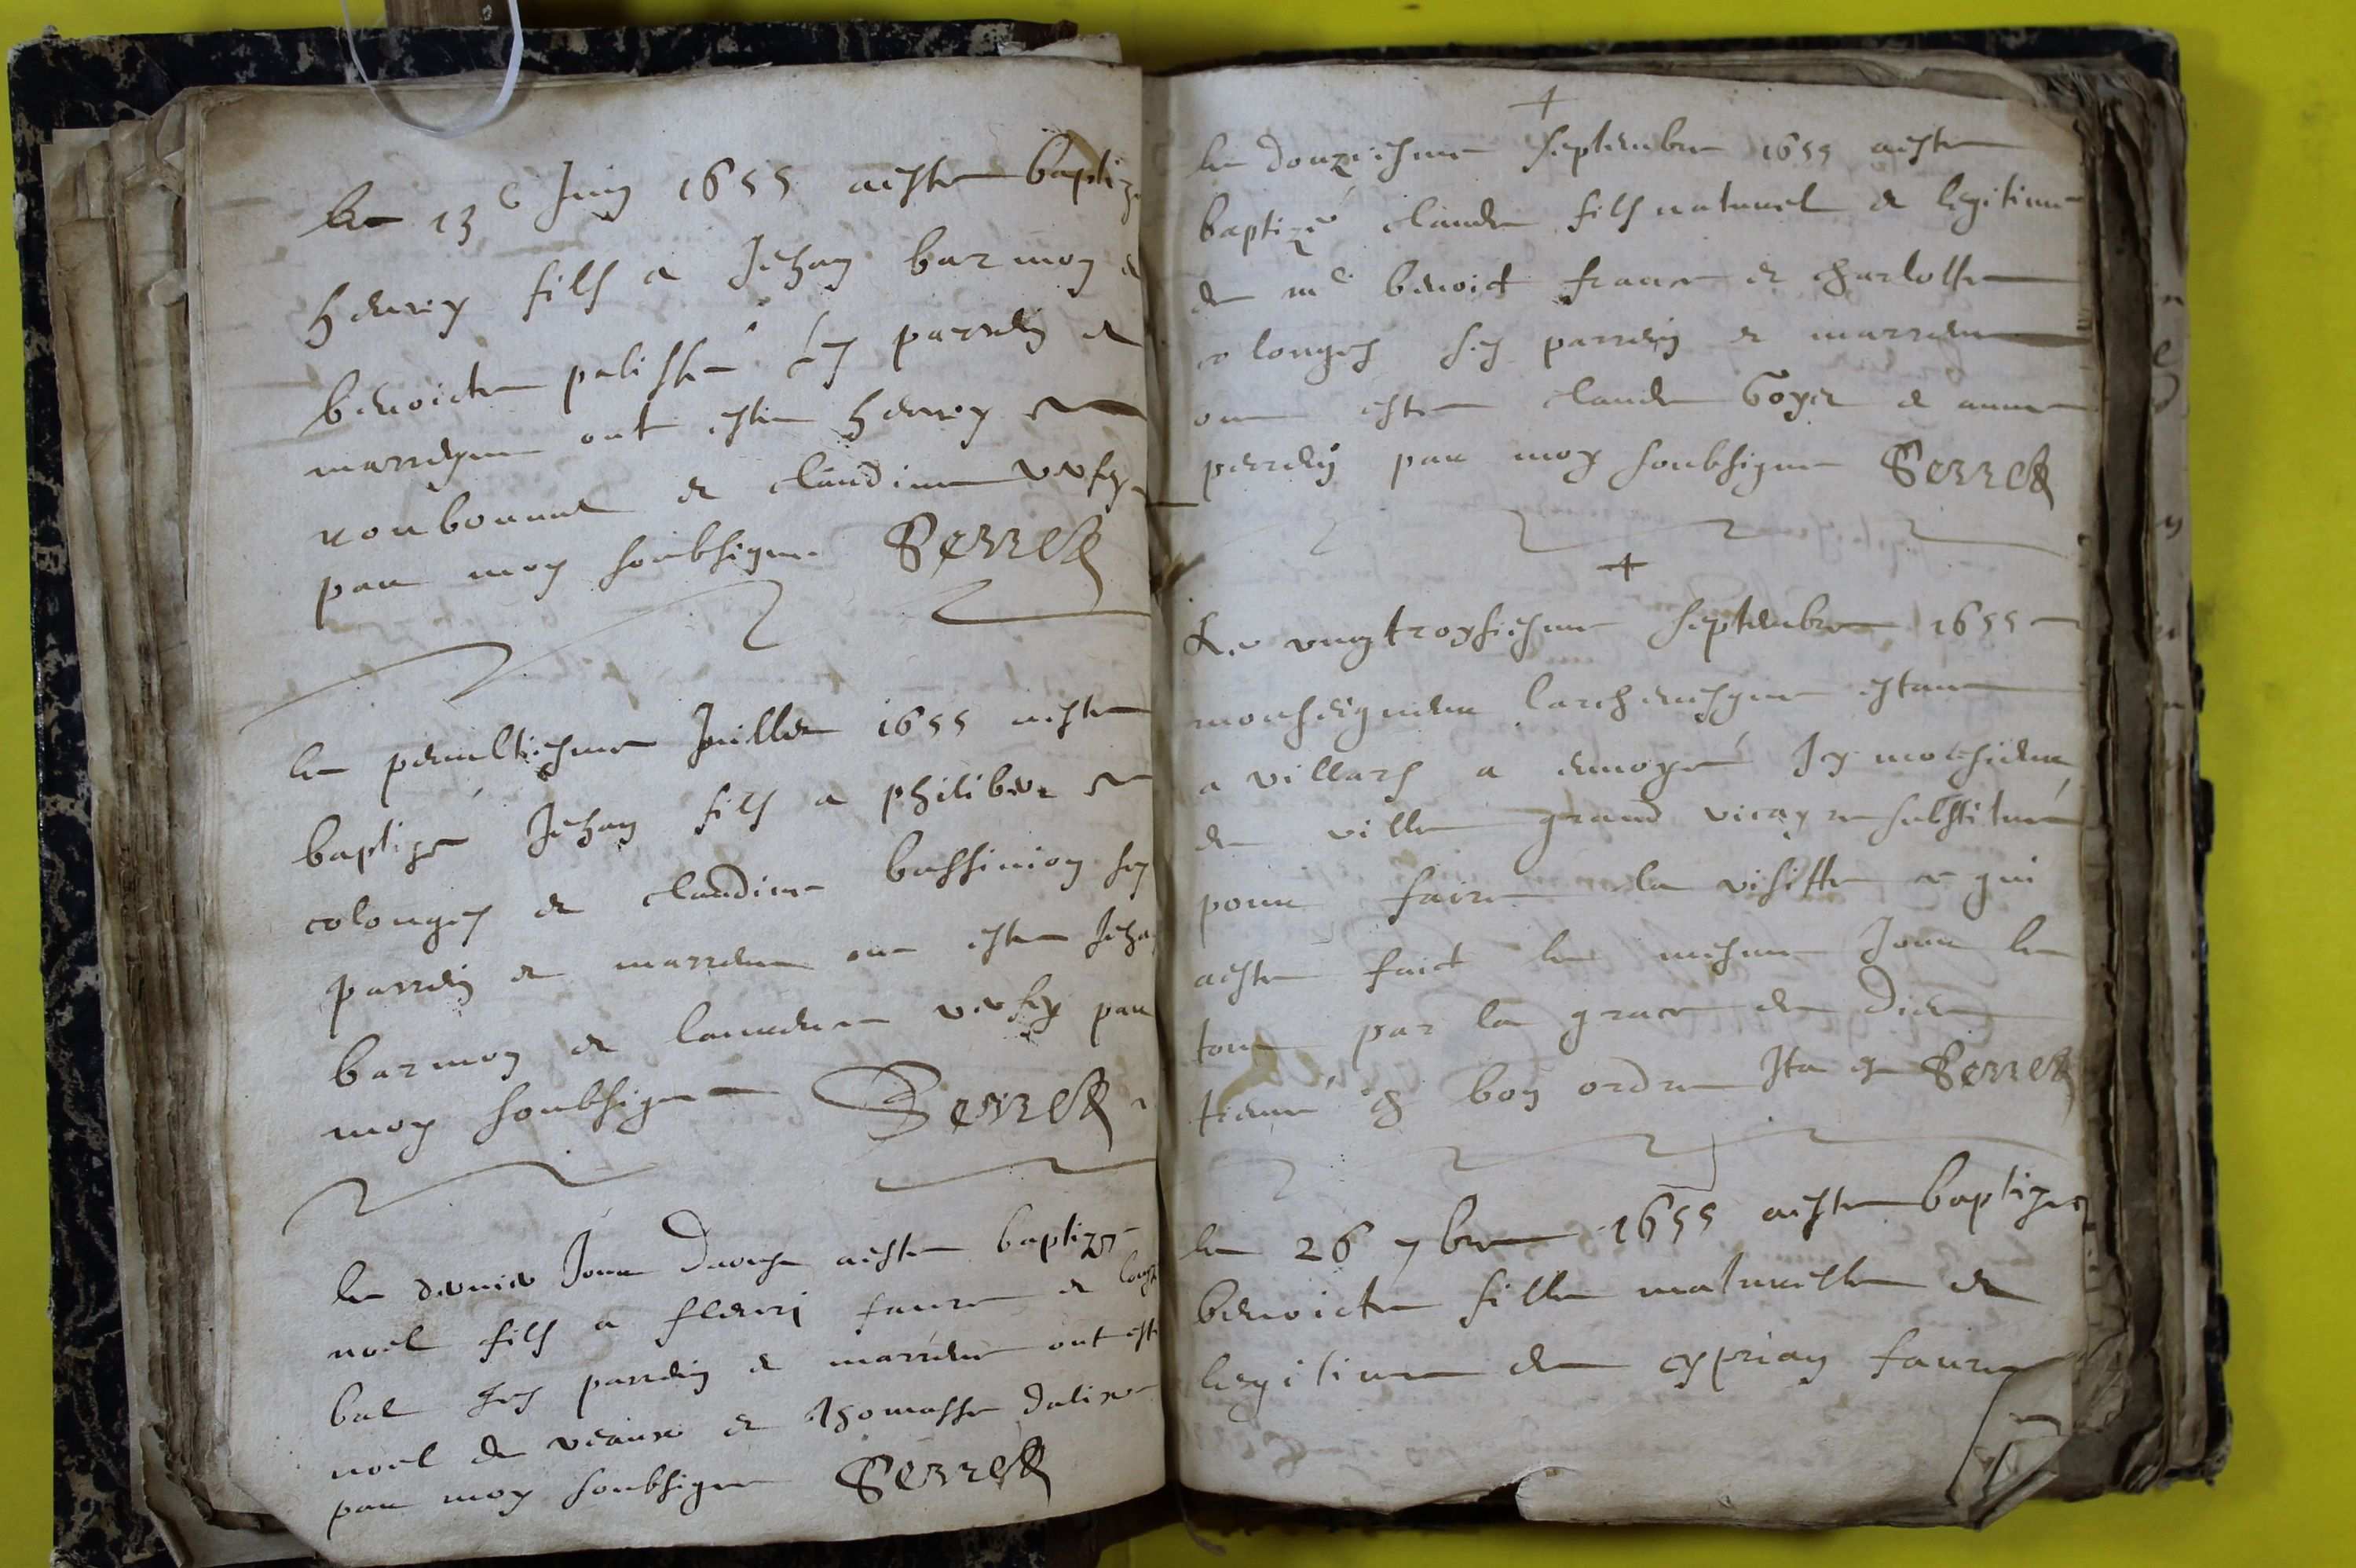 le 13e Juin 1655 a este baptizé
henry fils a Jehan barmon et
benoicte palisse ses parrein et
marreyne ont este henry
roubonnat et claudine
par moy soubsigne Serrett
le penultiesme Juillet 1655 a este
baptizé Jehan fils a philibert
colonges et claudine bassinion ses
parrein et marreine on este Jehan
barmon et par
moy soubsigne Serrett
le dernier Jour daoust a este baptize
noel fils a fleuri faure et
bal ses parrein et marreine ont este
noel de veaux et thomasse
par moy soubsigne Serrett
+
le douziesme septembre 1655 a este
baptizé claude fils naturel et legitime
de me benoict faure et charlotte
colonges ses parrein et marreine
on este claude Goyet et anne
perrein par moy soubsigne Serrett
+
Le vingtroysiesme septembre 1655
monseigneur larchevesque estant
a villars a envoyé Icy monsieur
de ville grand vicayre substitué
pour faire la visitte ce qui
a este faict le mesme Jour le
tout par la grace de Dieu
trouvé en bon ordre Ita est Serrett
le 26 7bre 1655 a este baptizee
benoicte fille naturelle et
legitime de cyprian faure